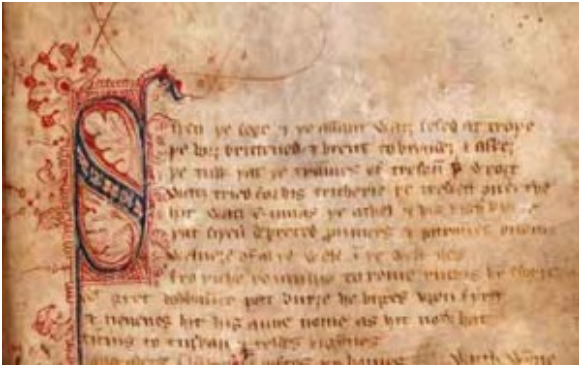 Siþen þe sege & þe assaut watz sesed at troye
þe borȝ brittened & brent to brondeȝ & askez
þe tulk þat þe trammes of tresoun þ wroȝt
watz tried for his tricherie þe trewest on erthe
hit watz ennias þe athel & his
þat siþen depreced prouinces & patrounes
welneȝe of al þe wele ī þe west iles
fro riche romulus to rome ricchis hȳ
gret bobbaūce þat burȝe he biges vpon fyrst
& neuenes hit his aune nome as hit now hat
to tuskan & teldes bigynnes
lyftes vp homes